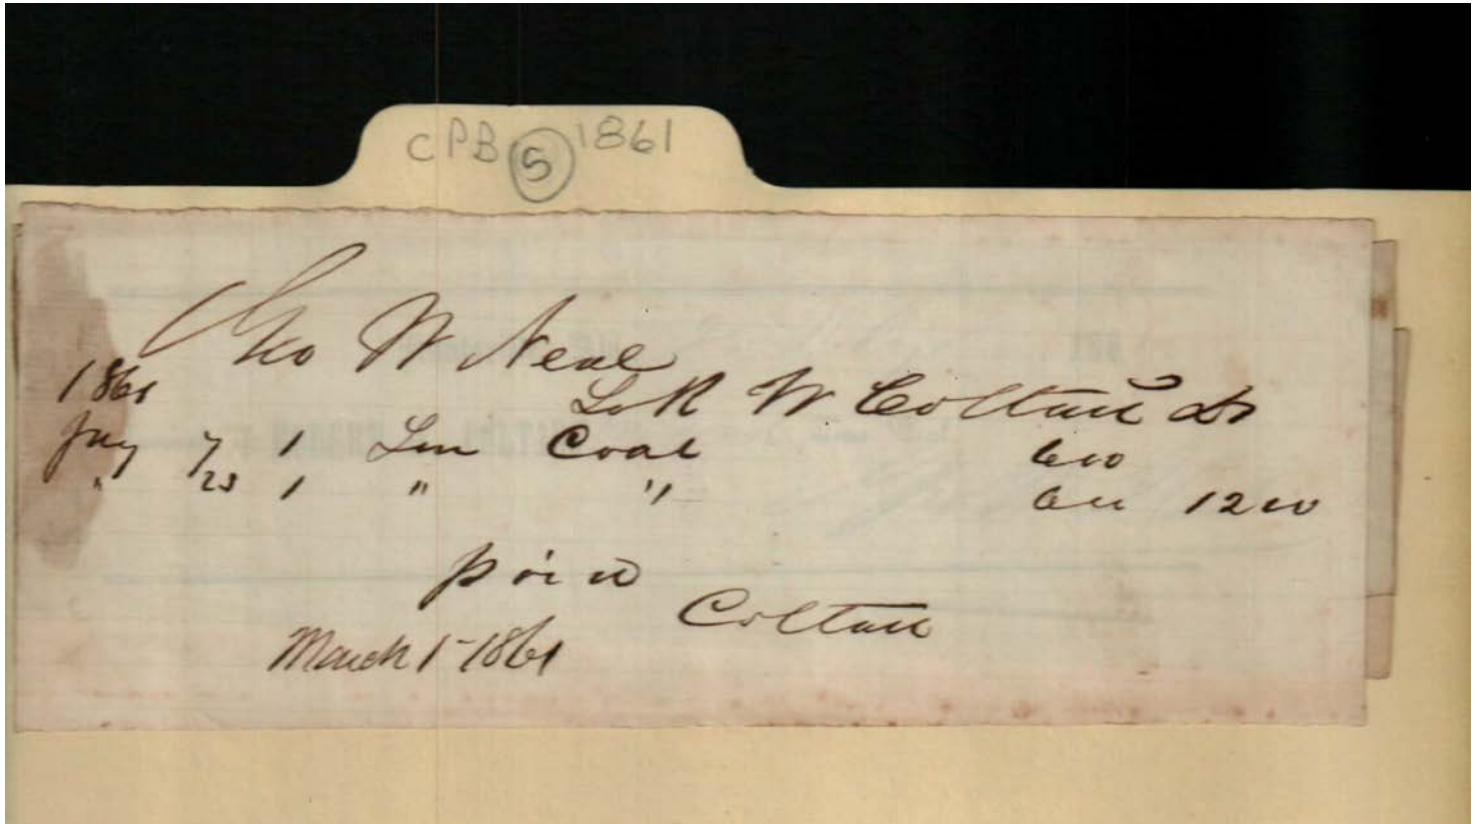 CPB 5 1861
Geo W Neal
1861
To R W Coltan Dr
Jany 7 1 Ton Coal 600
" 23 1 " " 600 1200
Paid
Coltan
March 1-1861